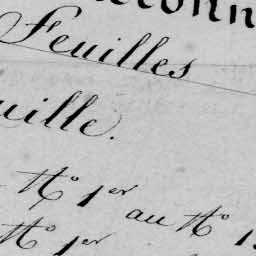 Feuilles
uille.
N° 1er au N° 1
N° 1er